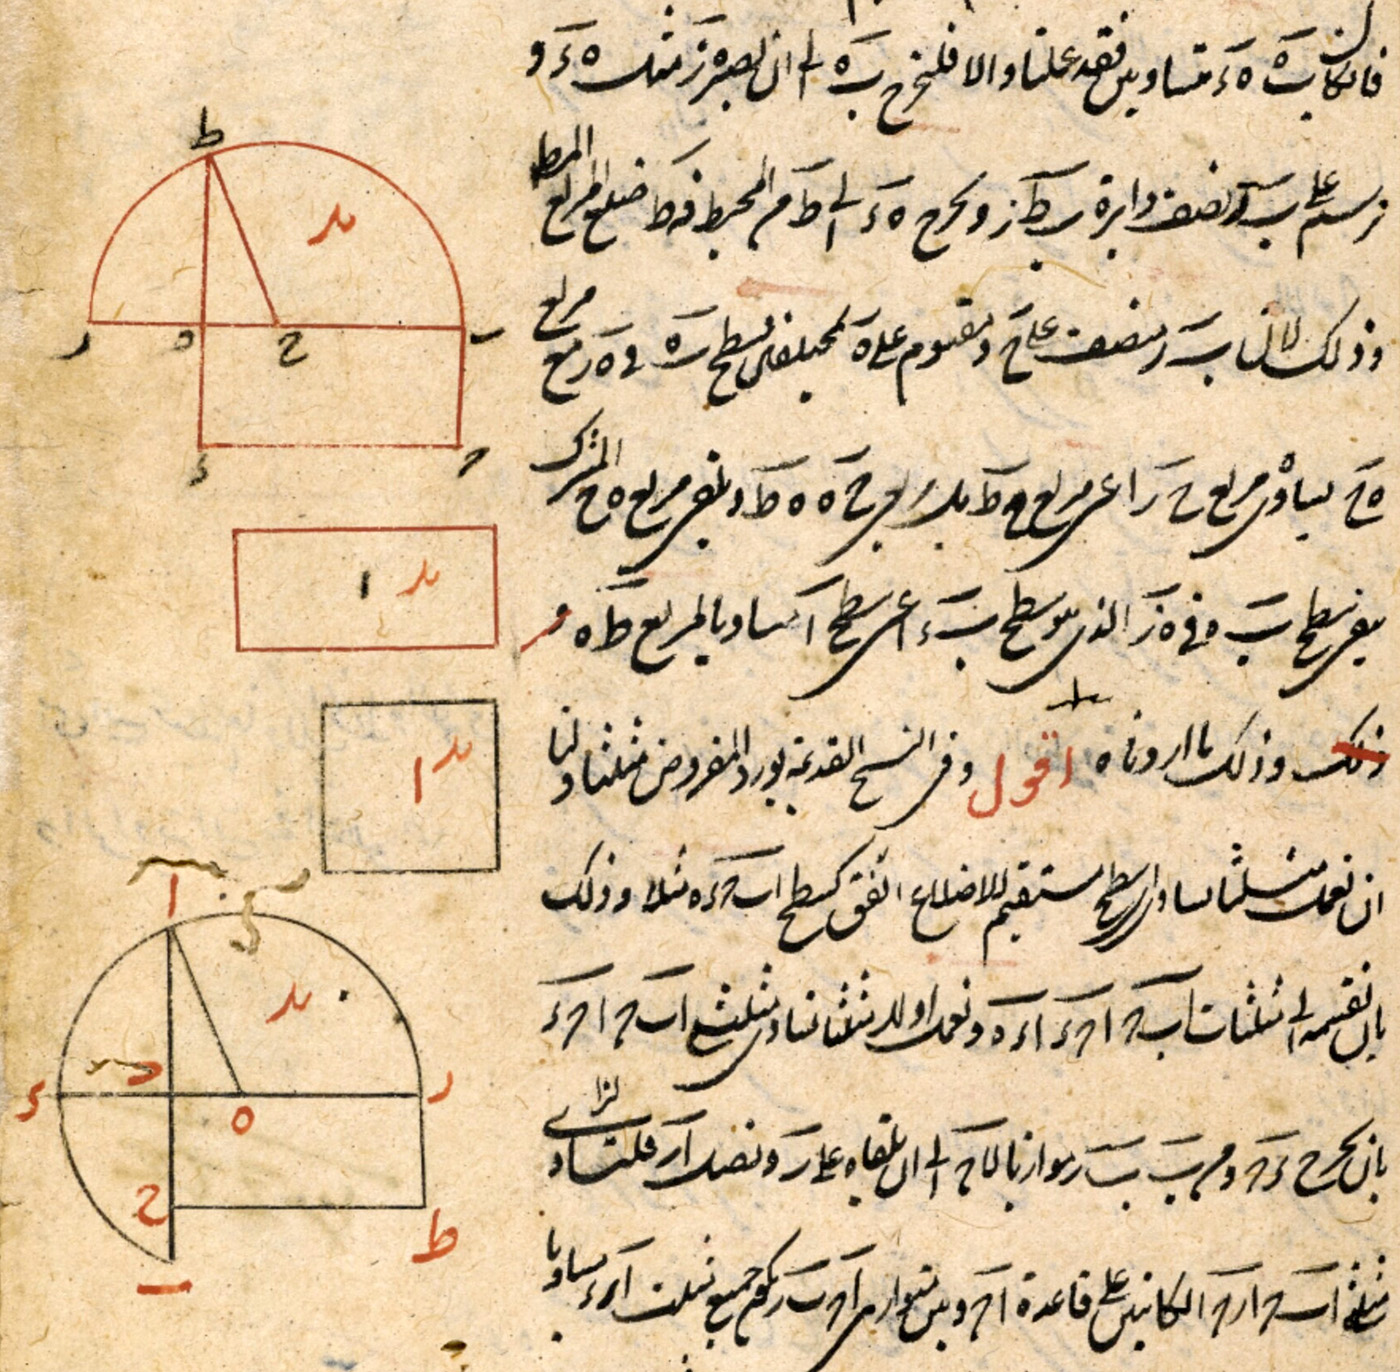 فان كان بَه هَء متساويين فقد عملنا والا فلنخرج بَه الى ان يصير هَز مثل هَء و
نرسم على بَز نصف دايرة بَطَز ونخرج هَء الى طَ من المحيط فهَط ضلع المربع المط
وذلك لان بَز منصف على حَ ومقسوم على هَ بمختلفين فسطح بَه في هَز مع مربع
هَح يساوى مربع حَز اعنى مربع حَط بل مربعى حَه هَط ونلقى مربع هَح المشترك
يبقى سطح بَه فى هَز الذى هو سطح بَء اعنى سطح ا مساويا لمربع طَه
وذلك ما اردناه اقول وفى النسخ القديمة يورد المفروض مثلثا ولنا
ان نعمل مثلثا يساوى اى سطح مستقيم الاضلاع اتفق كسطح ابجءه مثلا وذلك
بان نقسمه الى مثلثات ابج اجء اءه ونعمل اولا مثلثا يساوى مثلثى ابج اجء
بان نخرج ءج ومن ب بَز موازيا لاج الى ان يلقاه على ز ونصل از فلتساوى
مثلثى ابج ازج الكائنين على قاعدة اج وبين متوازيى اج بز يكون جميع مثلث ازء مساويا
ط
ىد
ر ه ح ب
ء ج
ا ىد
ىد ا
ا
ىد
ء ه ر
ح ط
ب